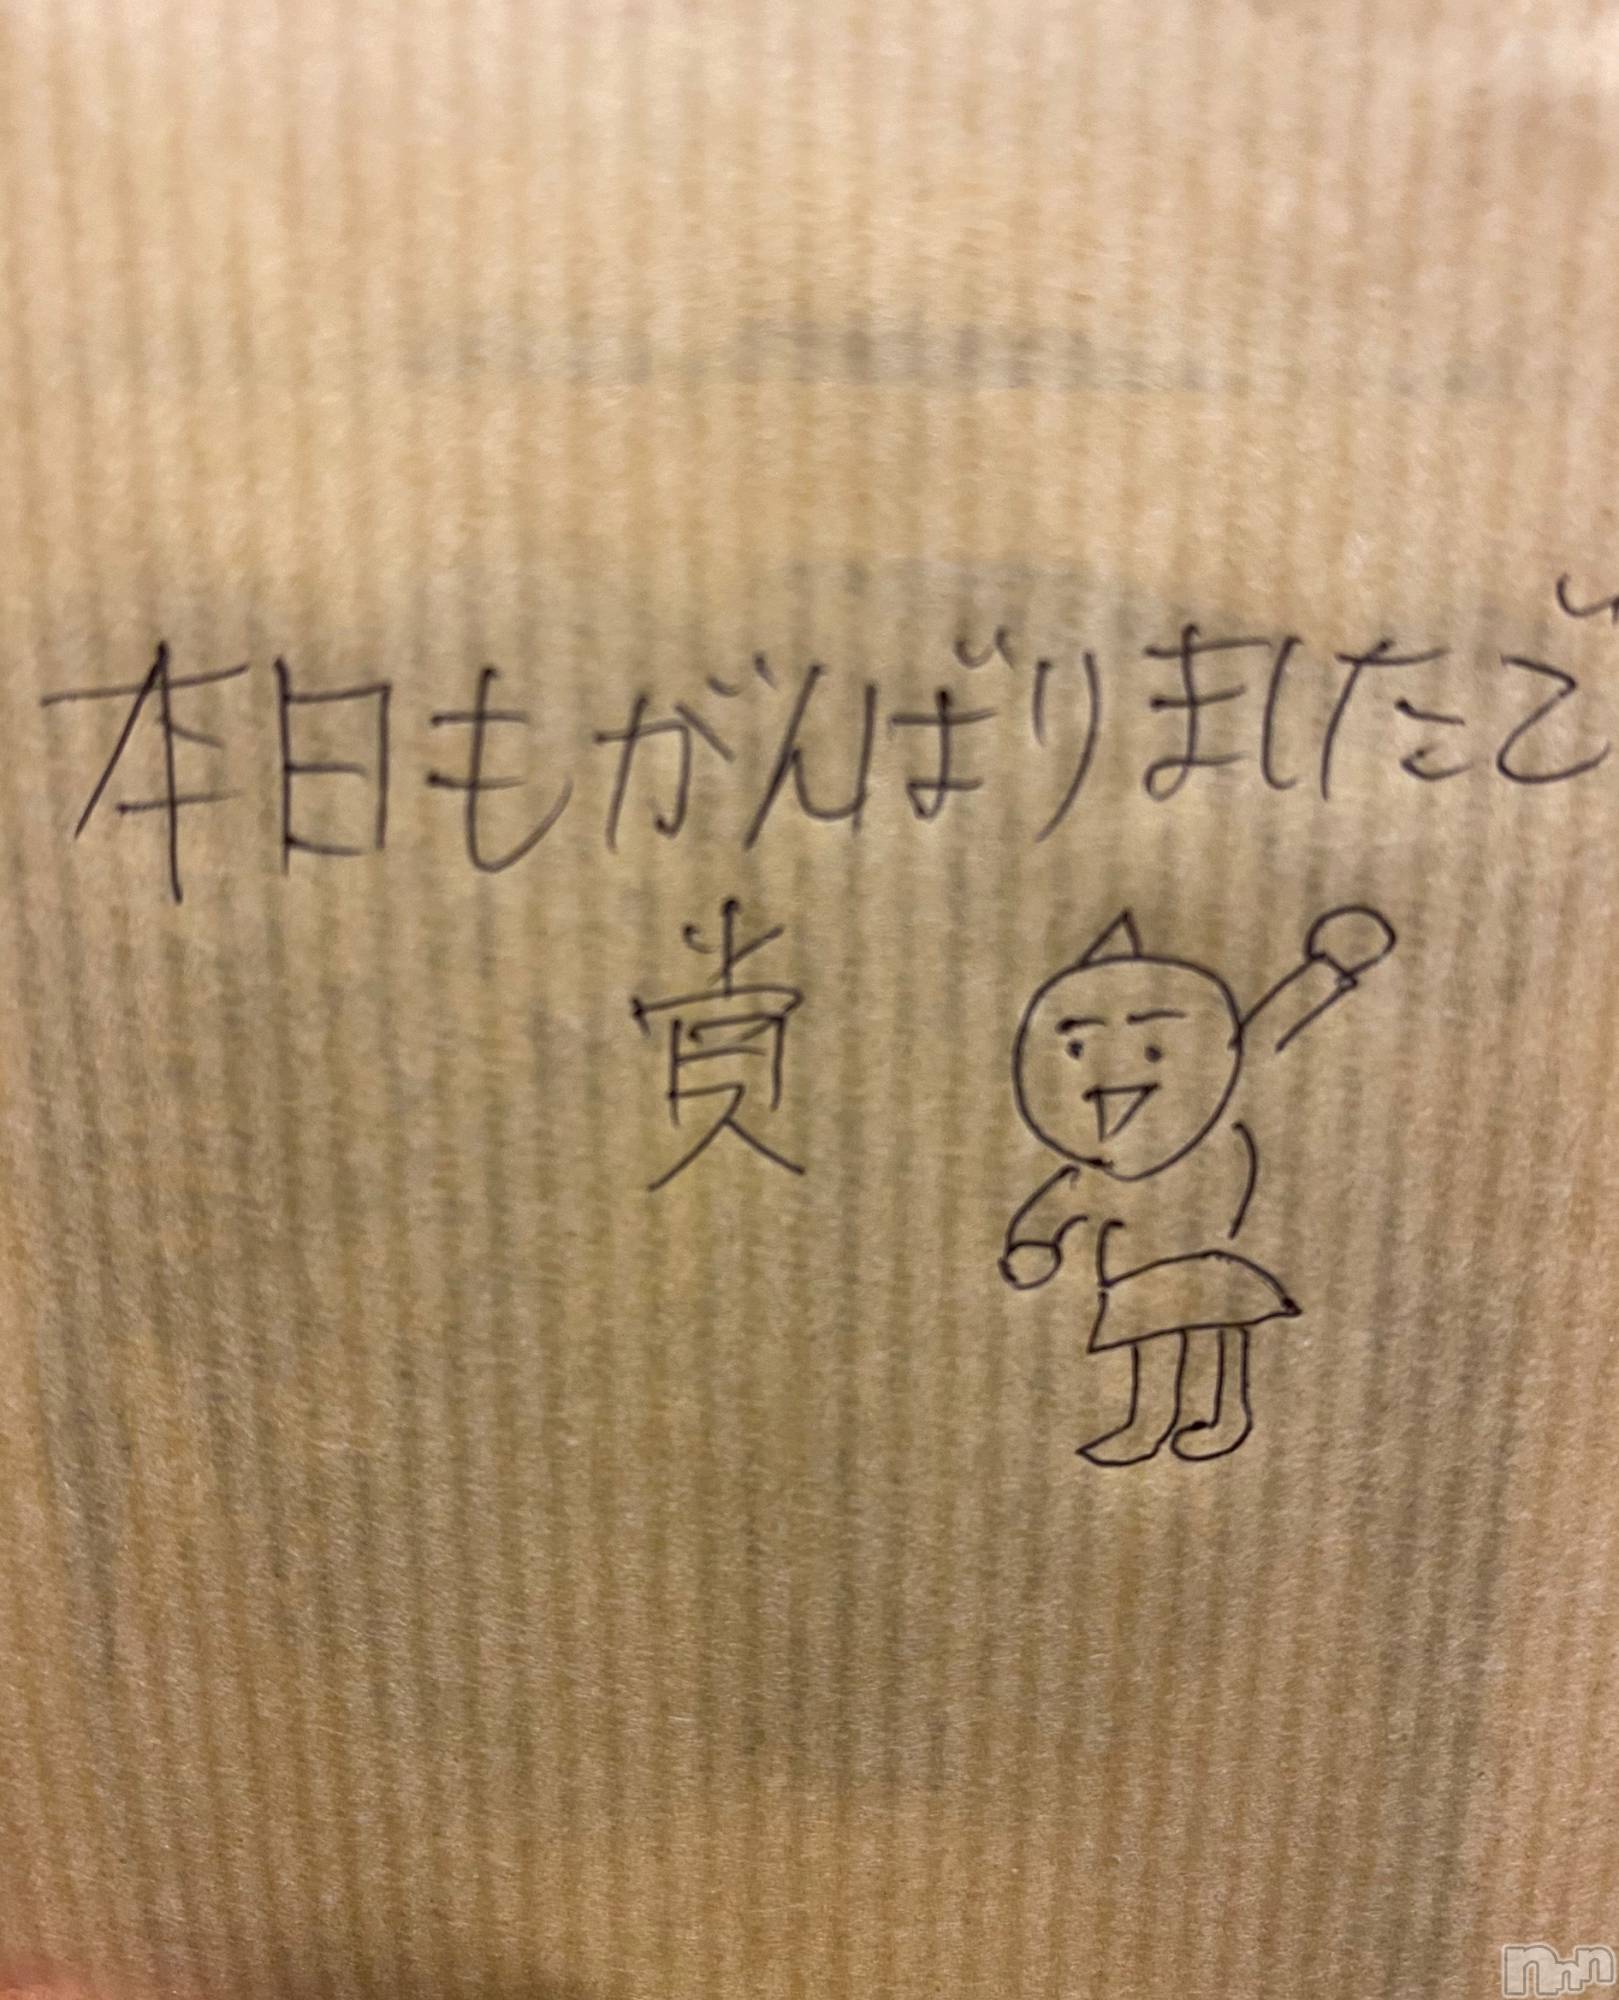 本日もがんばりましたで
賞
nnn